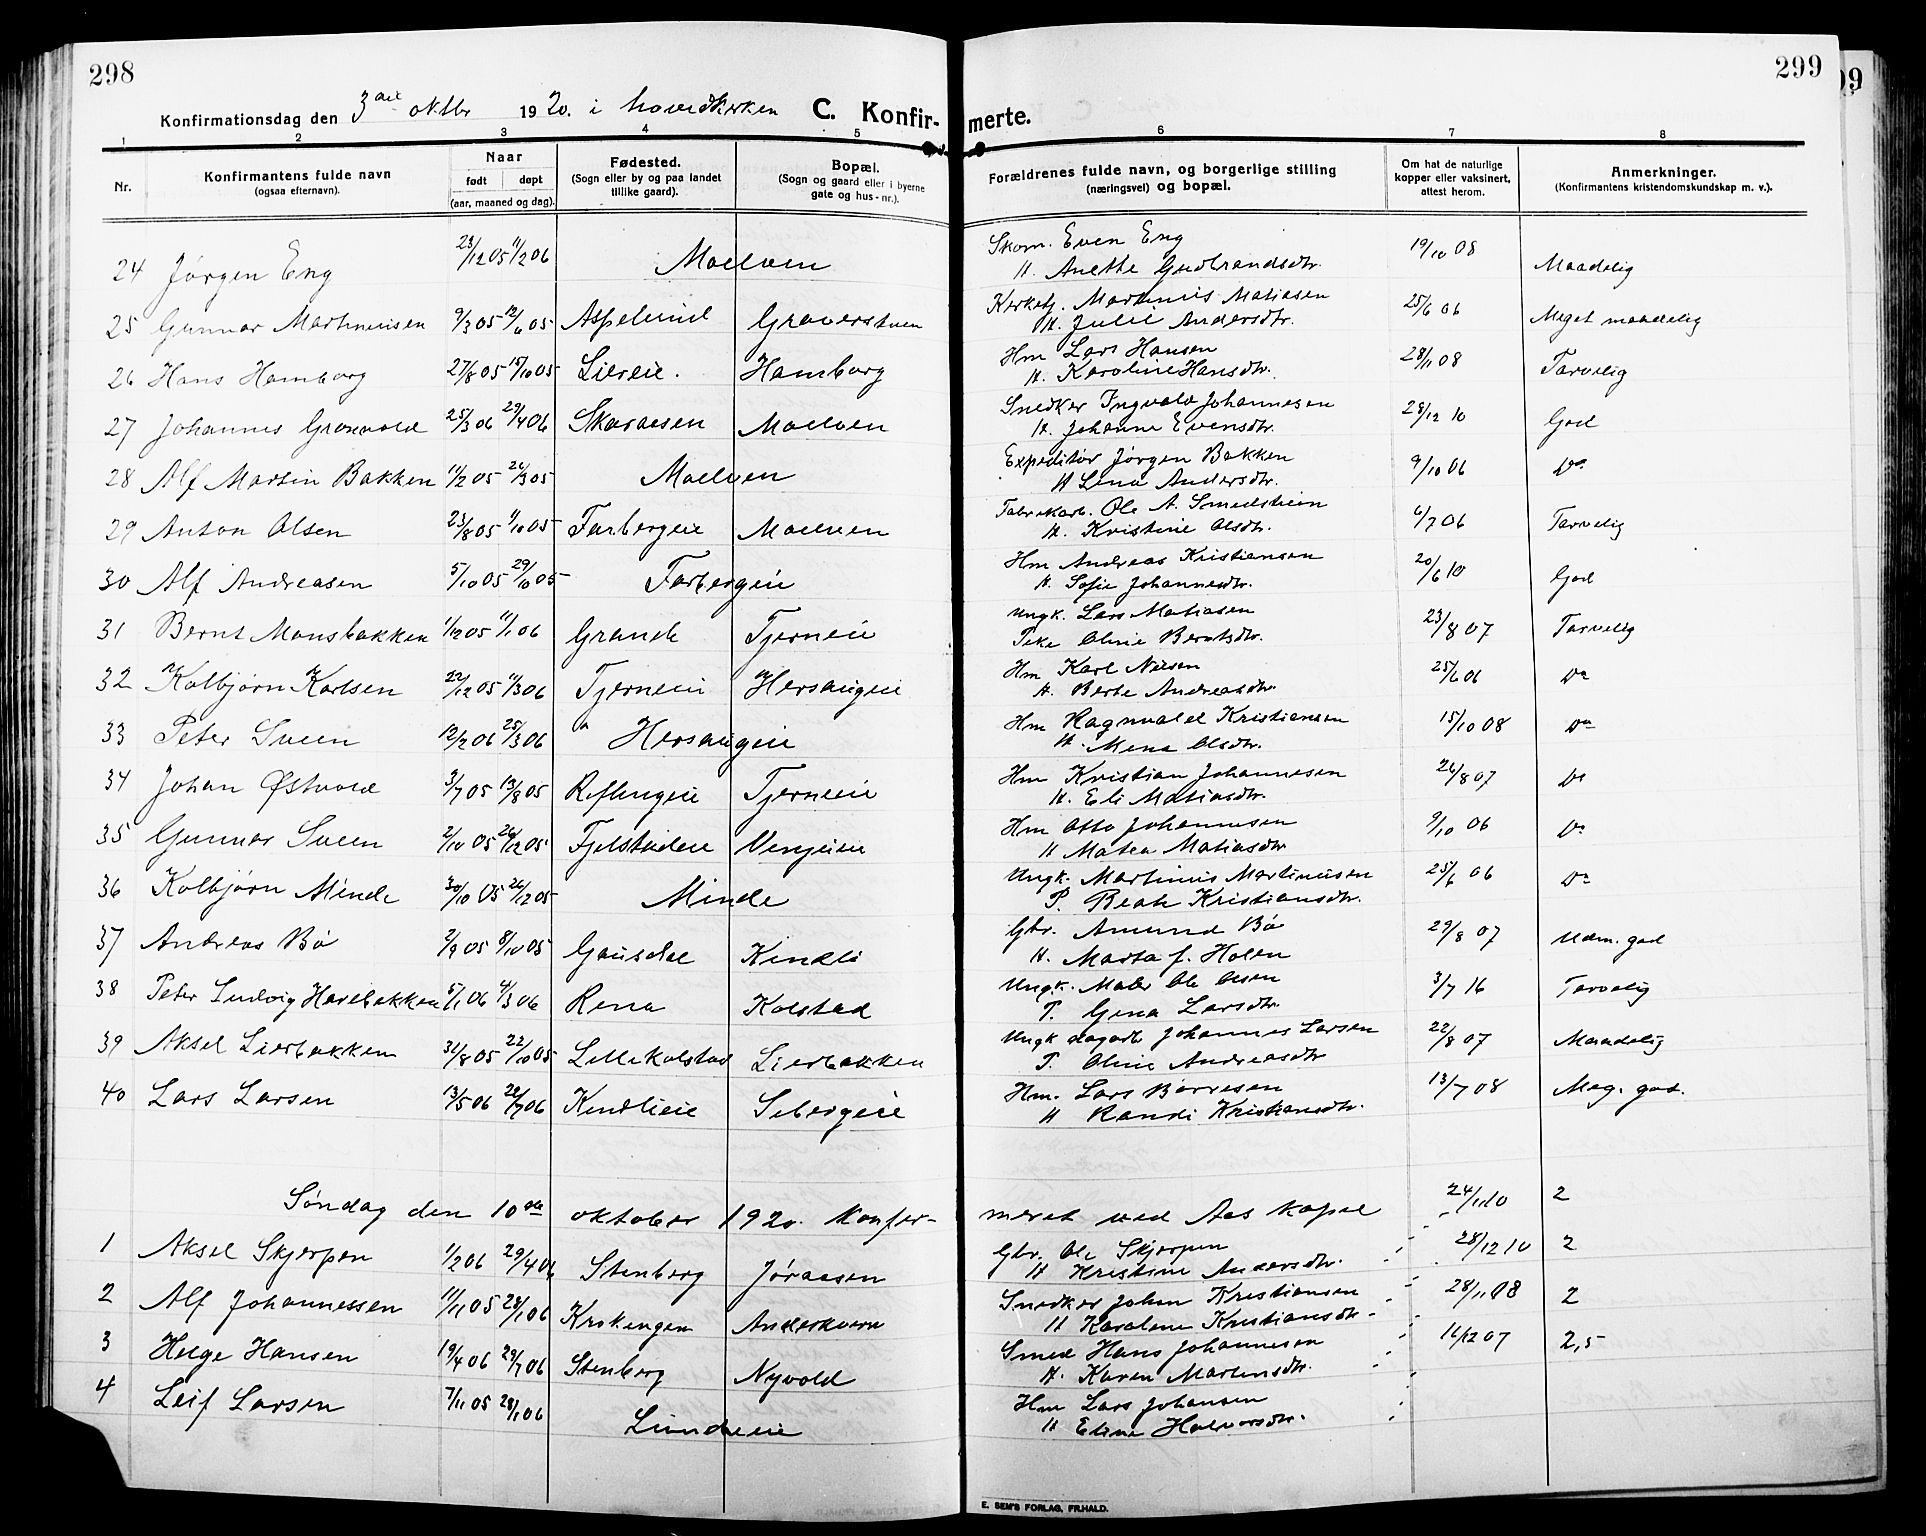 298
299
Konfirmationsdag den 3die oktbr 1920. i hovedkirken C. Konfir-merte.
1 2 3 4 5 6 7 8
Nr.
Konfirmantens fulde navn
(ogsaa efternavn).
Naar
født døpt
(aar, maaned og dag).
Fødested.
(Sogn eller by og paa landet
tillike gaard).
Bopæl.
(Sogn og gaard eller i byerne
gate og hus-nr.).
Forældrenes fulde navn, og borgerlige stilling
(næringsvei) og bopæl.
Om hat de naturlige
kopper eller vaksinert,
attest herom.
Anmerkninger.
(Konfirmantens kristendomskundskap m. v.).
24 Jørgen Eng 23/12 05 11/2 06 Moelven Skom. Even Eng 19/10 08 Maadelig
H. Anette Gudbrandsdtr.
25 Gunnar Martinusen 9/3 05 12/6 05 Aspelund Graverstuen Kirketj. Martinus Matiasen 25/6 06 Meget maadelig
H. Julie Andersdtr.
26 Hans Hamborg 27/8 05 15/10 05 Liereie. Hamborg Hm Lars Hansen 28/11 08 Tarvelig
H. Karoline Hansdtr.
27 Johannes Grønvold 25/3 06 29/4 06 Skaraasen Moelven Snedker Ingvald Johannesen 28/12 10 God
H. Johanne Evensdtr.
28 Alf Martin Bakken 11/2 05 26/3 05 Moelven Expeditør Jørgen Bakken 9/10 06 Do
H Lina Andersdtr.
29 Anton Olsen 23/8 05 11/10 05 Farbergeie Moelven Fabrikarb. Ole A. Smedsheim 6/7 06 Tarvelig
H. Kristine Olsdtr.
30 Alf Andreasen 5/10 05 29/10 05 Farbergeie Hm Andreas Kristiansen 20/6 10 God
H. Sofie Johannesdtr.
31 Bernt Monsbakken 1/12 05 11/1 06 Grande Tjerneie Ungk. Lars Matiasen 23/8 07 Tarvelig
Pike Oline Berntsdtr.
32 Kolbjørn Karlsen 22/12 05 11/3 06 Tjerneie Hersaugeie Hm Karl Nilsen 25/6 06 Do
H. Berte Andreasdtr.
33 Peter Sveen 12/2 06 25/3 06 Hersaugeie Hm Ragnvald Kristiansen 15/10 08 Do
H. Mena Olsdtr.
34 Johan Østvold 3/7 05 13/8 05 Reflingeie Tjerneie Hm Kristian Johannesen 26/8 07 Do
H. Eli Matiasdtr.
35 Gunnar Sveen 2/10 05 26/12 05 Fjelstadeie Venjeeie Hm Otto Johannesen 9/10 06 Do
H Matea Matiasdtr
36 Kolbjørn Minde 30/10 05 26/12 05 Minde Ungk. Martinus Martinusen 25/6 06 Do
P. Beate Kristiansdtr.
37 Andreas Bø 2/9 05 8/10 05 Gausdal Kindli Gbr. Amund Bø 29/8 07 Udm. god
H. Marta f. Holen
38 Peter Ludvig Harebakken 5/1 06 4/3 06 Rena Kolstad Ungk. Maler Ole Olsen 3/7 16 Tarvelig
P. Gina Larsdtr.
39 Aksel Lierbakken 31/8 05 22/10 05 Lillekolstad Lierbakken Ungk dagarb Johannes Larsen 22/8 07 Maadelig
P. Oline Andreasdtr
40 Lars Larsen 13/5 06 26/7 06 Kindlieie Sebergeie Hm. Lars Børresen 13/7 08 Meg. god.
H Randi Kristiansdtr.
Søndag den 10de oktober 1920. Konfir-meret ved Aas kapel 24/1 10 2
1 Aksel Skjerpen 1/2 06 29/4 06 Stenberg Jøraasen Gbr. Ole Skjerpen 28/12 10 2
H Kristine Andersdtr.
2 Alf Johannessen 11/11 05 28/1 06 Krokengen Anderkvern Snedker Johan Kristiansen 28/11 08 2
H Karoline Kristiansdtr
3 Helge Hansen 19/4 06 29/7 06 Stenberg Nyvold Smed Hans Johannesen 16/12 07 2,5
H. Karen Martinsdtr.
4 Leif Larsen 7/11 05 28/1 06 Lundeeie Hm Lars Johansen
H Eline Halvorsdtr.
E. SEM'S FORLAG, FR.HALD.